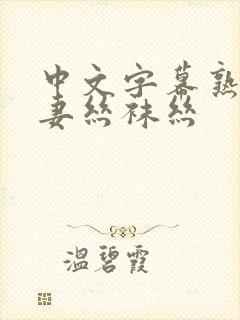 中文字幕熟
妻丝袜丝
溫碧霞